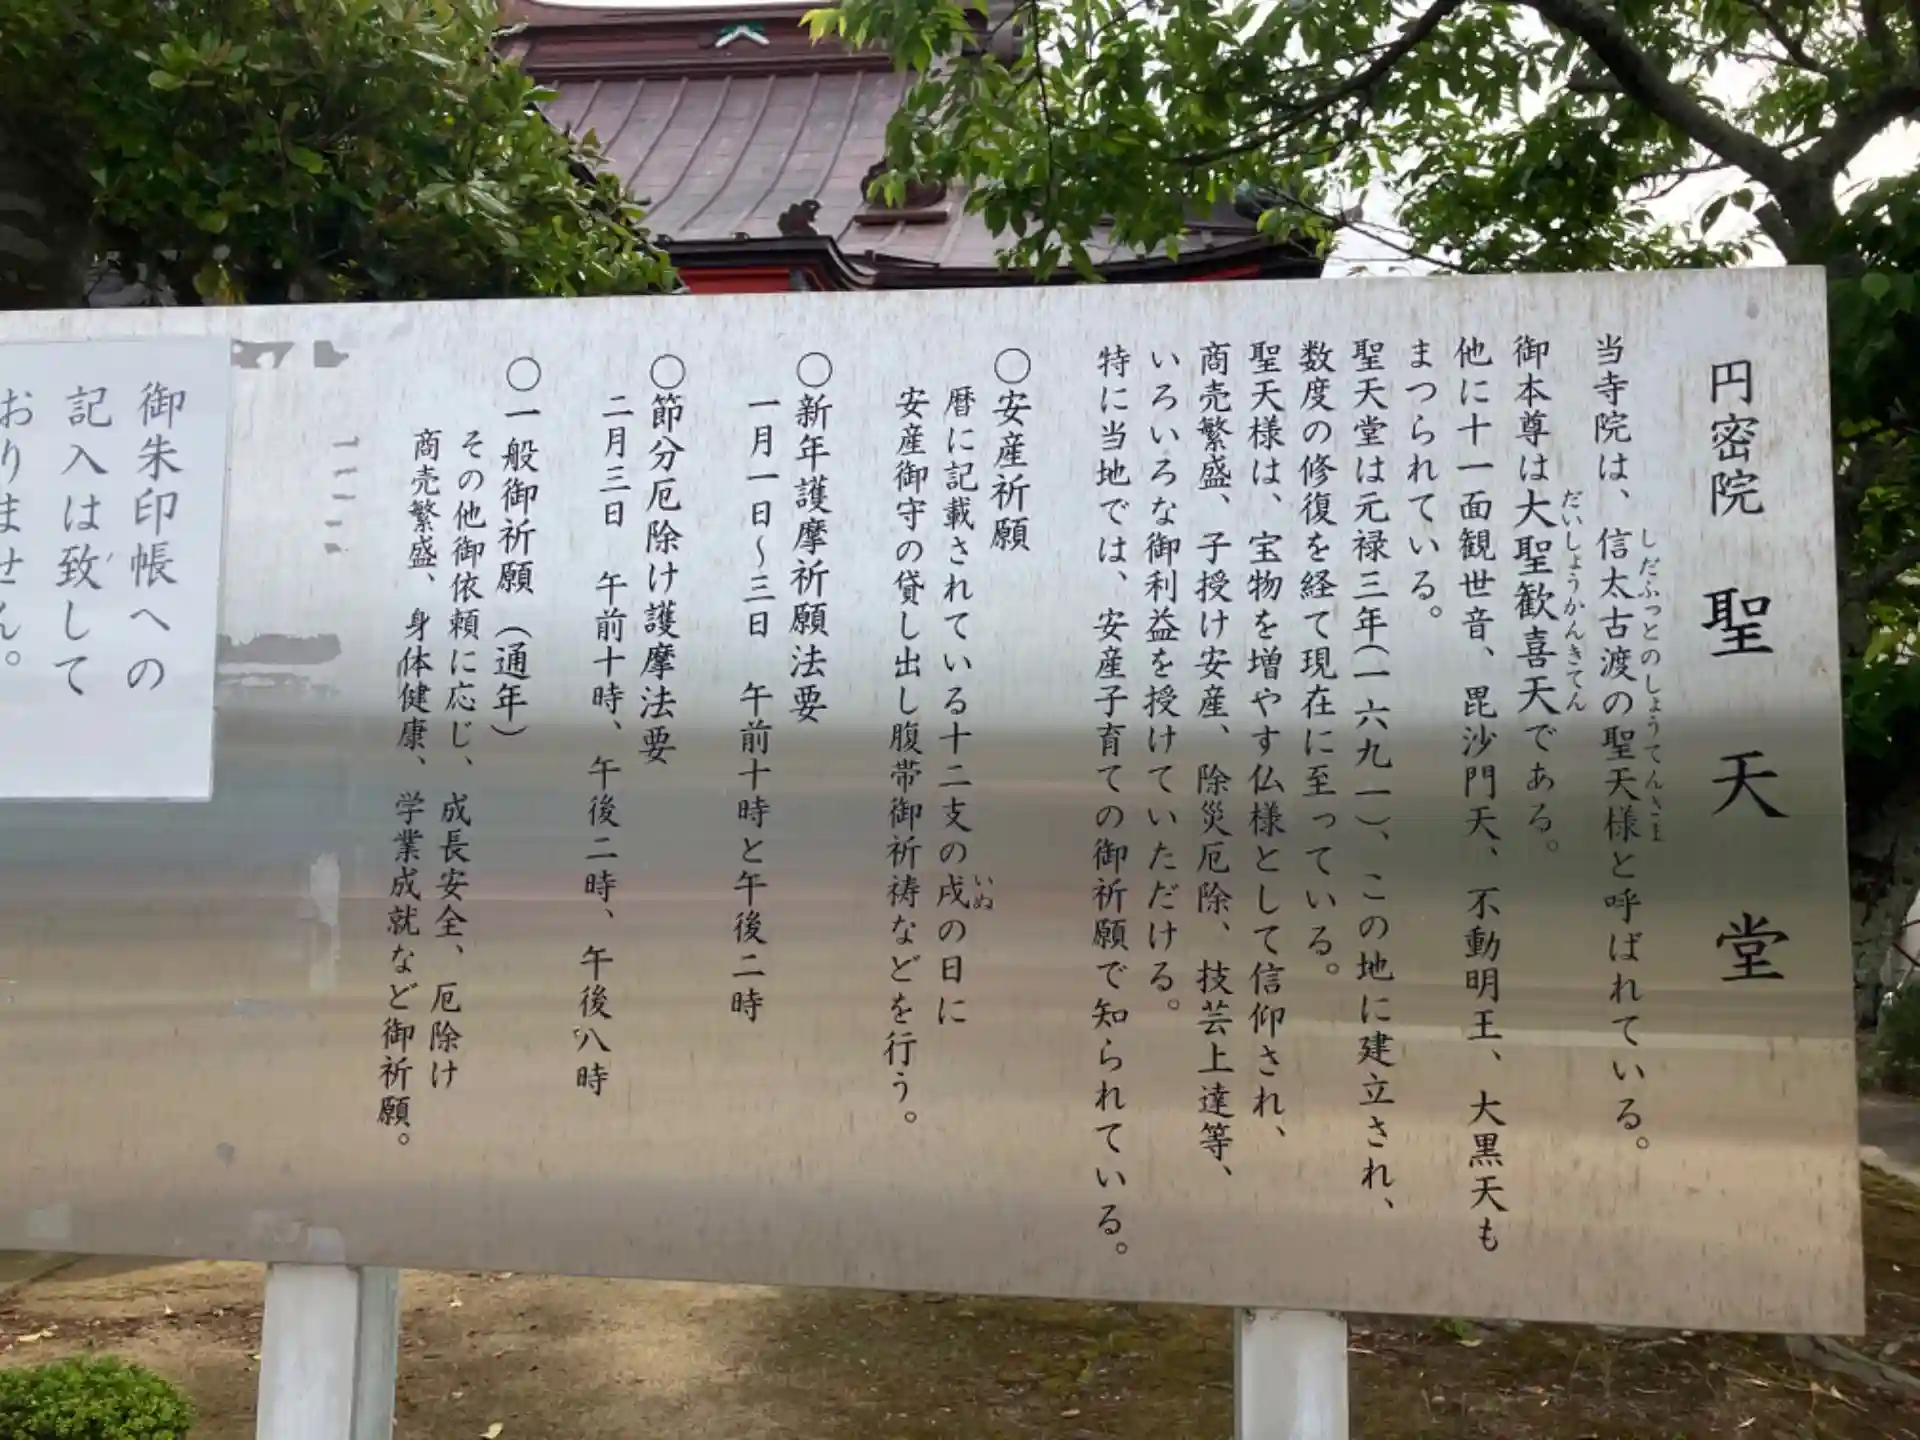 円密院 聖天堂
当寺院は、信太古渡の聖天様と呼ばれている。
しだふっとのしょうてんさま
御本尊は大聖歓喜天である。
だいしょうかんきてん
他に十一面観世音、毘沙門天、不動明王、大黒天も
まつられている。
聖天堂は元禄三年(一六九一)、この地に建立され、
数度の修復を経て現在に至っている。
聖天様は、宝物を増やす仏様として信仰され、
商売繁盛、子授け安産、除災厄除、技芸上達等、
いろいろな御利益を授けていただける。
特に当地では、安産子育ての御祈願で知られている。
○安産祈願
暦に記載されている十二支の戌の日に
いぬ
安産御守の貸し出し腹帯御祈祷などを行う。
○新年護摩祈願法要
一月一日～三日 午前十時と午後二時
○節分厄除け護摩法要
二月三日 午前十時、午後二時、午後八時
○一般御祈願(通年)
その他御依頼に応じ、成長安全、厄除け
商売繁盛、身体健康、学業成就など御祈願。
御朱印帳への
記入は致して
おりません。